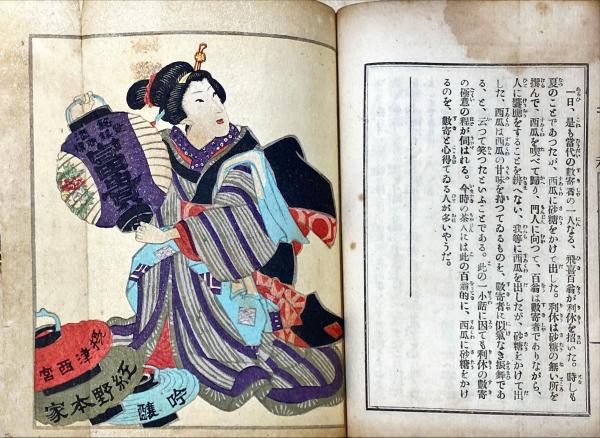 一日、是も當代の數寄者の一人なる、飛喜百翁が利休を招いた。時しも
夏のことであつたが、西瓜に砂糖をかけて出した。利休は砂糖の無い所を
撰んで、西瓜を喫べて歸り、門人に向つて、百翁は數寄者でありながら、
人に饗應をすることを辨へない、我等に西瓜を出したが、砂糖をかけて出
した、西瓜は西瓜の甘味を持つてゐるものを、數寄者に似氣なき振舞であ
る、と、云つて笑つたといふことである。此の一小話に因ても利休の數寄
の極意の程が伺はれる。今時の茶人には此の百翁的に、西瓜に砂糖をかけ
るのを、數寄と心得てゐる人が多いやうだ。
攝津西宮
野本家
吟醸